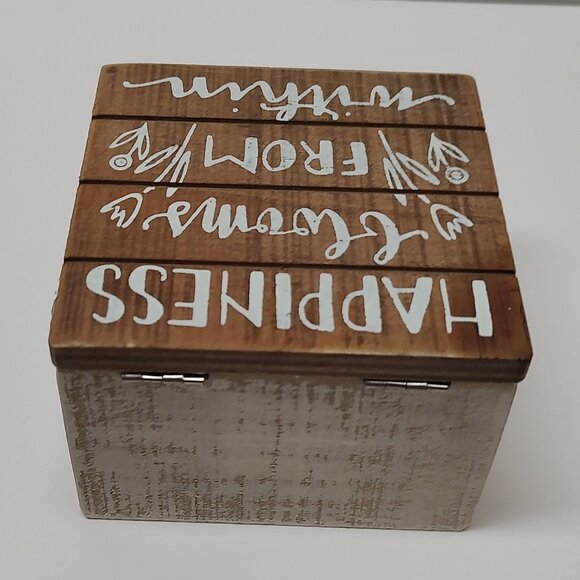 HAPPINESS
blooms
FROM
within